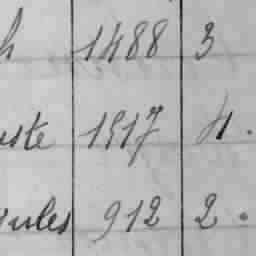 h 1488 3
uste 1517 4.
gules 912 2.